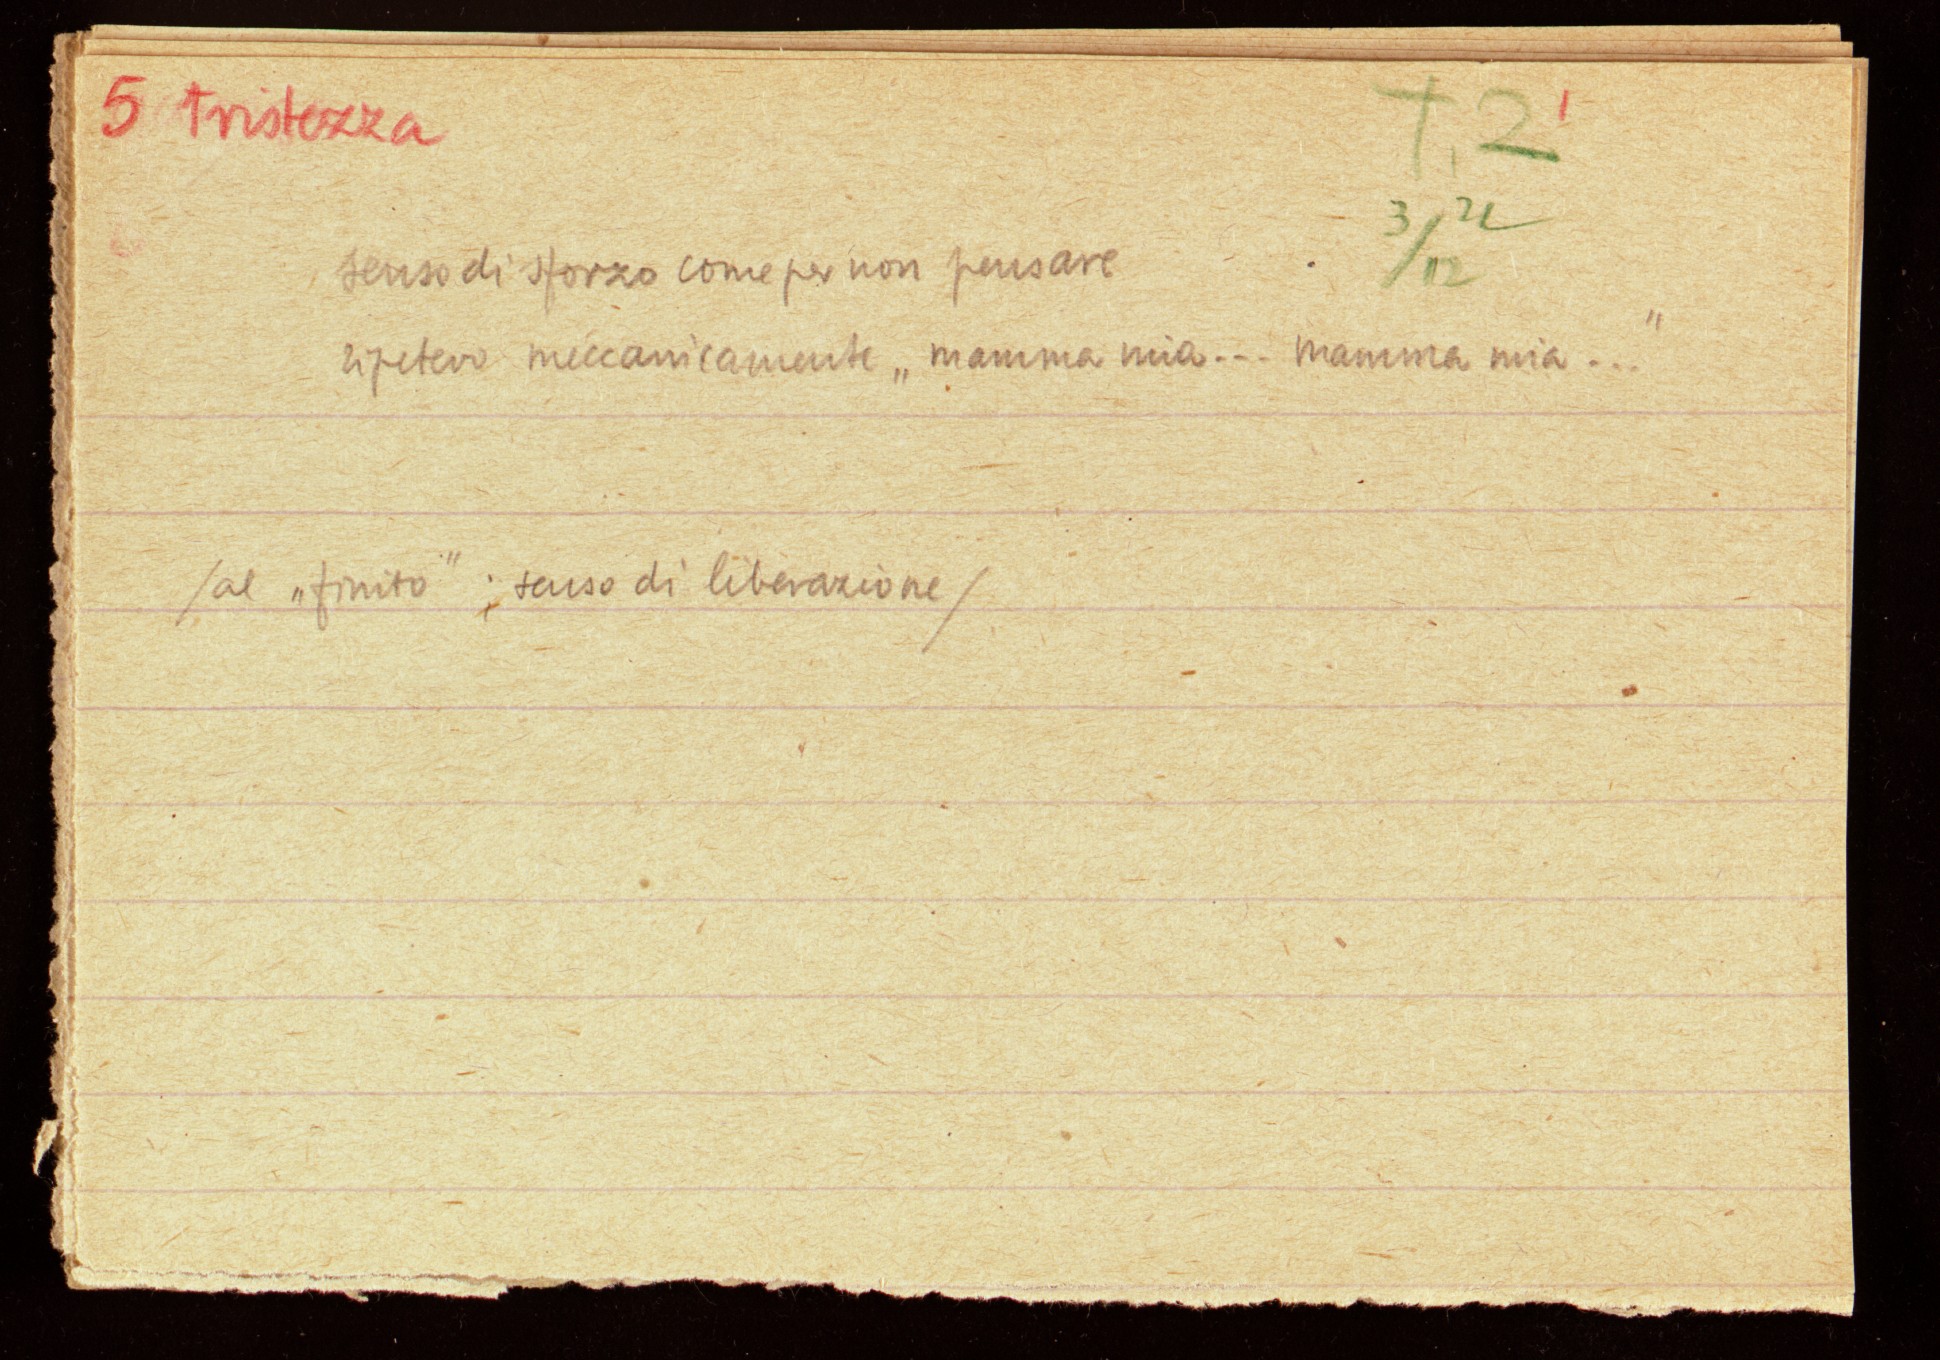 5 tristezza
T. 2'
senso di sforzo come per non pensare
ripetevo meccanicamente „mamma mia... mamma mia..."
/al „finito": senso di liberazione/